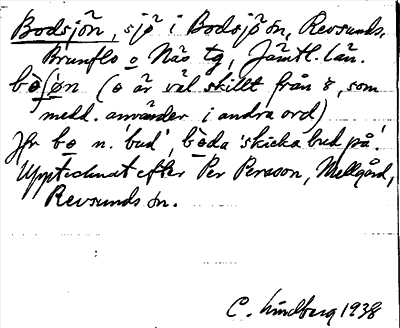 Bodsjön, sjö i Bodsjö sn, Revsunds,
Brunflo o Näs tg, Jämtl. län.
(o är väl skillt från ö, som
medd. använder i andra ord)
Jfr bo n. 'bud', boda 'skicka bud på'.
Upptecknat efter Per Persson, Mellgård,
Revsunds sn.
C. Lindberg 1938